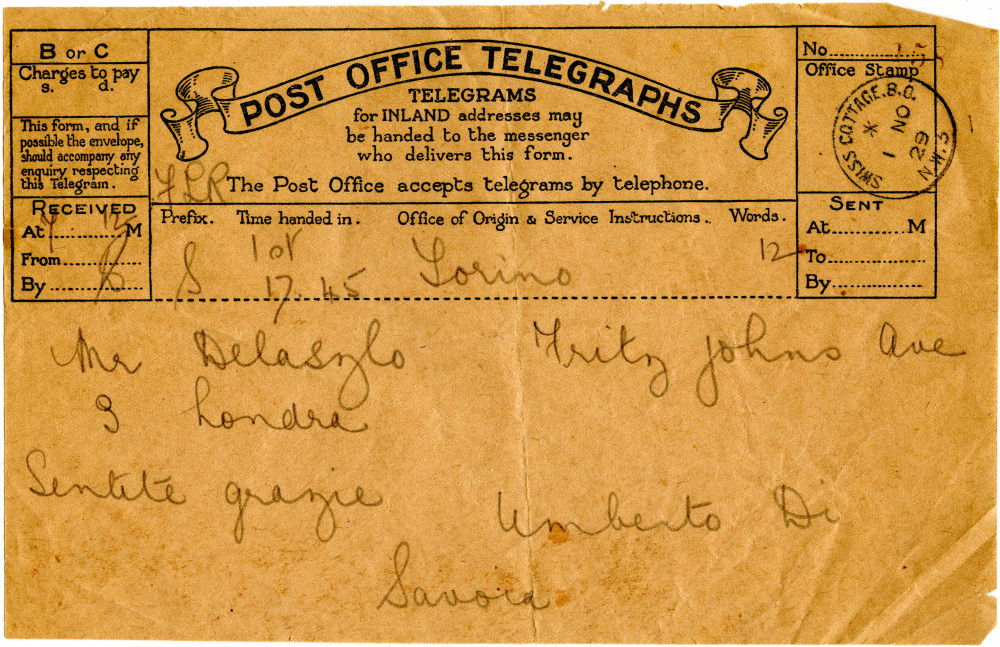 B or C
Charges to pay
s. d.
This form, and if
possible the envelope,
should accompany any
enquiry respecting
this Telegram.
RECEIVED
At 7 125 M
From
By
POST OFFICE TELEGRAPHS
TELEGRAMS
for INLAND addresses may
be handed to the messenger
who delivers this form.
The Post Office accepts telegrams by telephone.
Prefix. Time handed in. Office of Origin & Service Instructions. Words.
S 1st 17.45 Torino 12
No
Office Stamp
SWISS COTTAGE.B.O.
N.W.3
1 NO
29
SENT
At M
To
By
Mr Delaszlo Fritz johns Ave
3 Londra
Sentite grazie
Umberto Di
Savoia